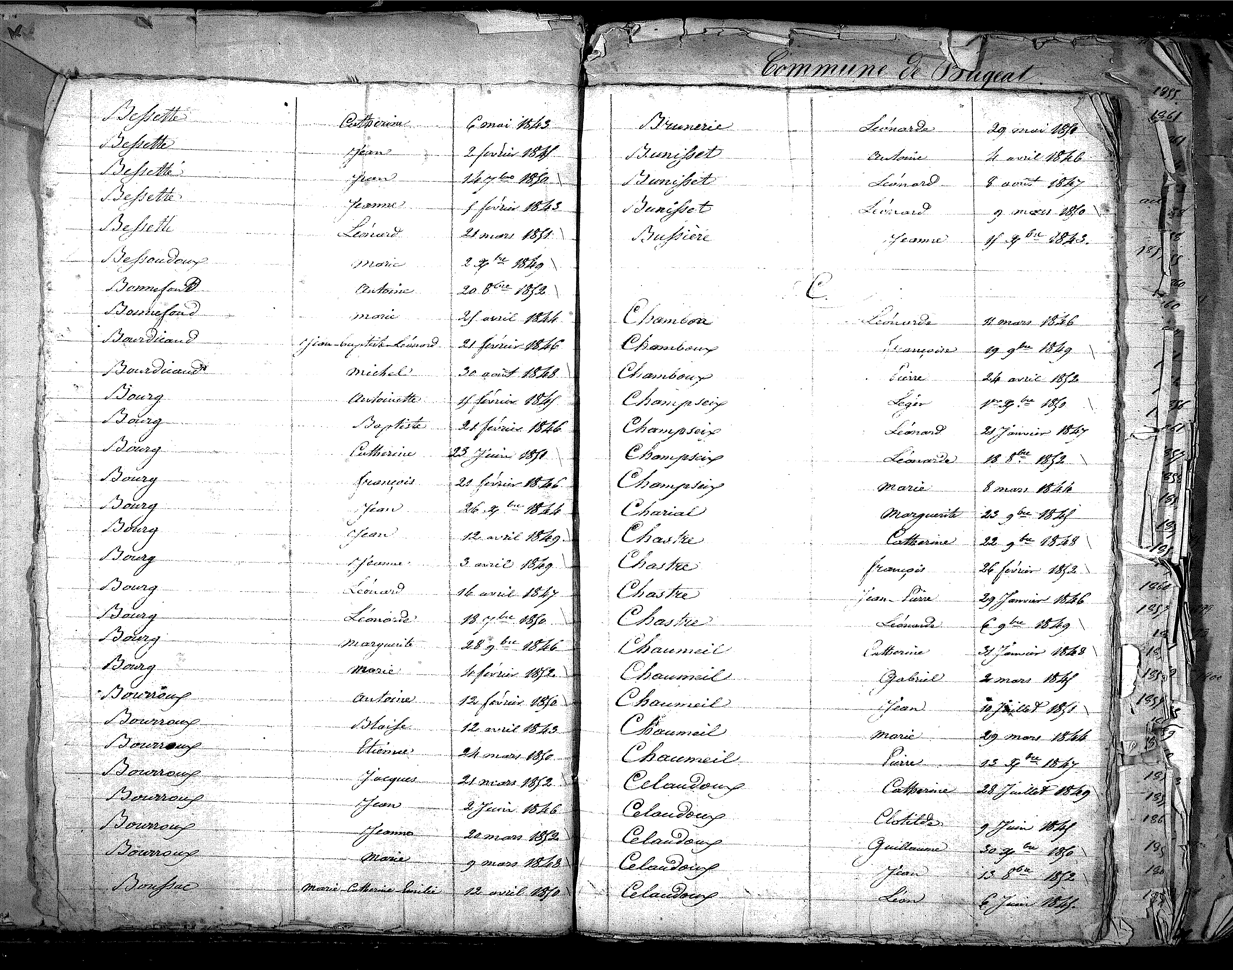 Commune de Bugeat.
Bessette Catherine 6 mai 1843
Bessette Jean 2 février 1845
Bessette Jean 14 7bre 1850
Bessette Jeanne 5 février 1843
Bessette Léonard 21 mars 1851
Bessoudoux marie 2 Xbre 1849
Bonnefond Antoine 20 8bre 1852
Bonnefond marie 25 avril 1844
Bourdicaud Jean-baptiste-Léonard 21 février 1846
Bourdicaud michel 30 août 1848
Bourg Antoinette 15 février 1845
Bourg Baptiste 21 février 1846
Bourg Catherine 23 Juin 1850
Bourg françois 21 février 1846
Bourg Jean 26 Xbre 1844
Bourg Jean 12 avril 1849
Bourg Jeanne 3 avril 1849
Bourg Léonard 16 avril 1847
Bourg Léonarde 18 7bre 1850
Bourg marguerite 28 9bre 1846
Bourg marie 4 février 1852
Bourroux antoine 12 février 1850
Bourroux Blaise 12 avril 1843
Bourroux Etienne 24 mars 1850
Bourroux Jacques 21 mars 1852
Bourroux Jean 2 Juin 1846
Bourroux Jeanne 20 mars 1852
Bourroux marie 9 mars 1848
Boussac marie-Catherine Emilie 12 avril 1850
Brunerie Léonarde 29 mai 1850
Bunisset antoine 4 avril 1846
Bunisset Léonard 8 août 1847
Bunisset Léonard 9 mars 1850
Bussière Jeanne 15 Xbre 1843
C.
Chambon Léonarde 11 mars 1846
Chamboux françoise 19 9bre 1849
Chamboux Pierre 24 avril 1852
Champseix Léger 1er Xbre 1850
Champseix Léonard 21 Janvier 1847
Champseix Léonarde 18 8bre 1852
Champseix marie 8 mars 1844
Charial Marguerite 23 9bre 1845
Chastre Catherine 22 9bre 1848
Chastre françois 26 février 1852
Chastre Jean-Pierre 29 Janvier 1846
Chastre Léonarde 6 9bre 1849
Chaumeil Catherine 31 Janvier 1848
Chaumeil Gabriel 2 mars 1845
Chaumeil Jean 10 Juillet 1851
Chaumeil marie 29 mars 1844
Chaumeil Pierre 13 Xbre 1847
Celaudoux Catherine 28 Juillet 1849
Celaudoux Clotilde 9 Juin 1845
Celaudoux Guillaume 30 Xbre 1850
Celaudoux Jean 13 8bre 1852
Celaudoux Léon 6 Juin 1845